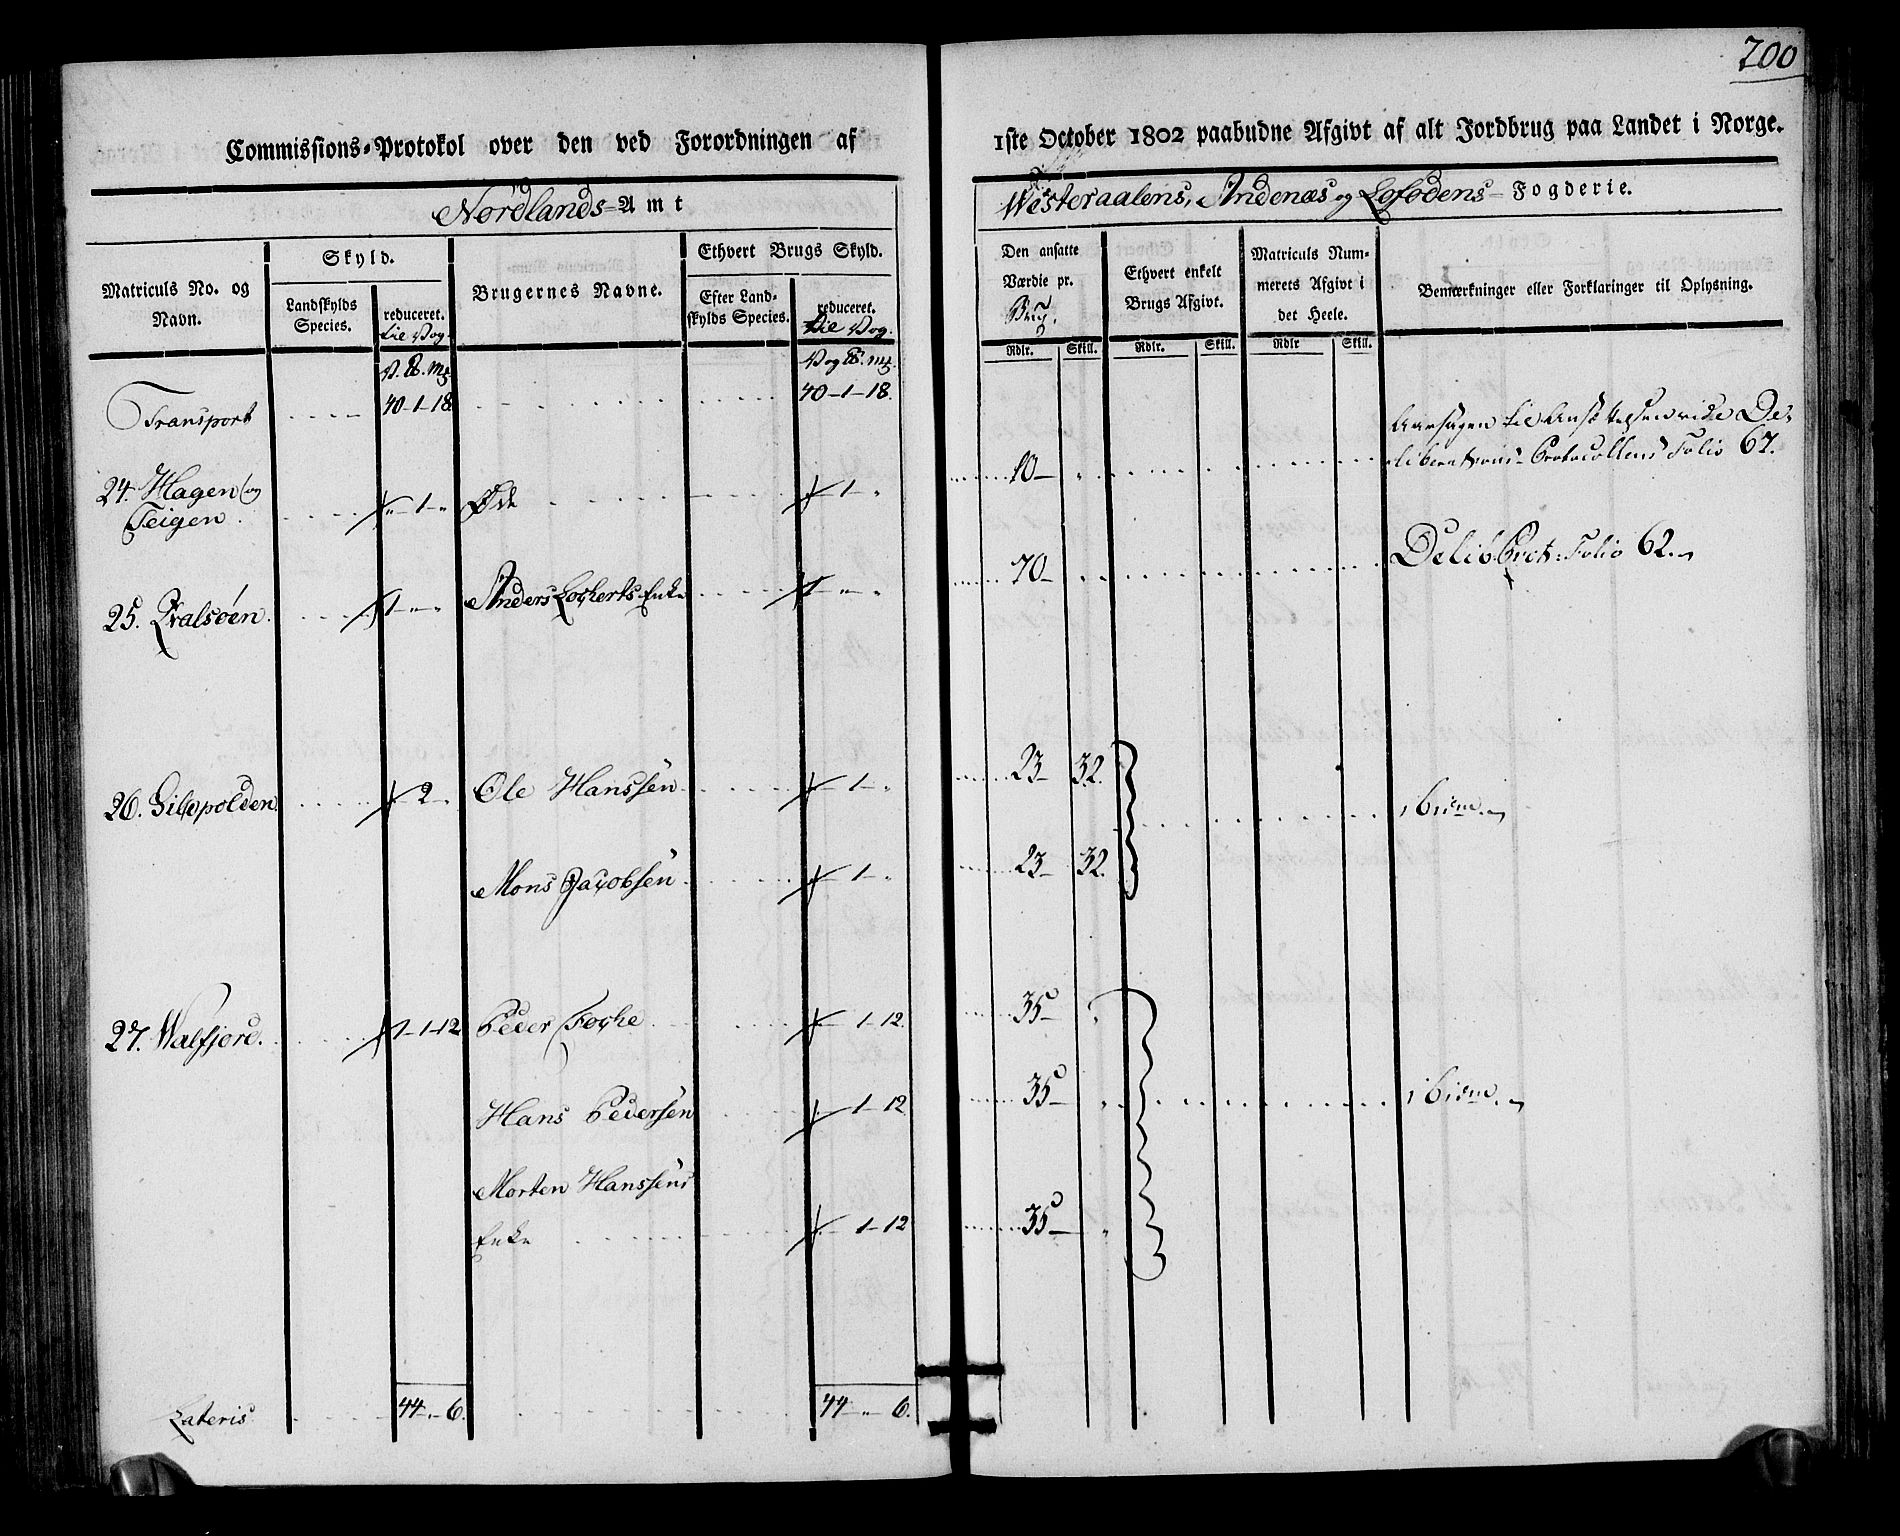 200
Commissions-Protokol over den ved Forordningen af
1ste October 1802 paabudne Afgivt af alt Jordbrug paa Landet i Norge.
Nordlands-Amt
Westeraalens, Andenæs og Lofodens-Fogderie.
Matriculs No. og Navn.
Skyld.
Landskylds Species.
reduceret. til Vog.
Brugernes Navne.
Ethvert Brugs Skyld.
Efter Landskylds Species.
reduceret. til Vog.
Den ansatte Værdie pr. Brug.
Ethvert enkelt Brugs Afgivt.
Matriculs Nummerets Afgivt i det Heele.
Bemærkninger eller Forklaringer til Oplysning.
Rdlr. Skill. Rdlr. Skill. Rdlr Skill.
V. ℔. mk. Vog ℔. mk.
Transport 40-1-18 40-1-18.
24. Hagen og Teigen. „-1-„ Øde 1-„ 10- „
Aarsagen til Ansættelsen vide Deliberations-Protocollens Folio 67.
25. Qvalsöen. 1-„-„ Anders Locherts Enke 1-„-„ 70-
Delib. Prot: Folio 62.
26. Gilspolden 2-„ Ole Hanssen 1-„ 23- 32. ibidm.
Mons Jacobsen 1-„ 23- 32.
27. Walfjord. 1-1-12 Peder Foche 1-12. 35- „
Hans Pedersen 1-12 35- „ ibidm.
Morten Hanssens
Enke 1-12 35- „
Lateris 44-„-6. 44-„-6.